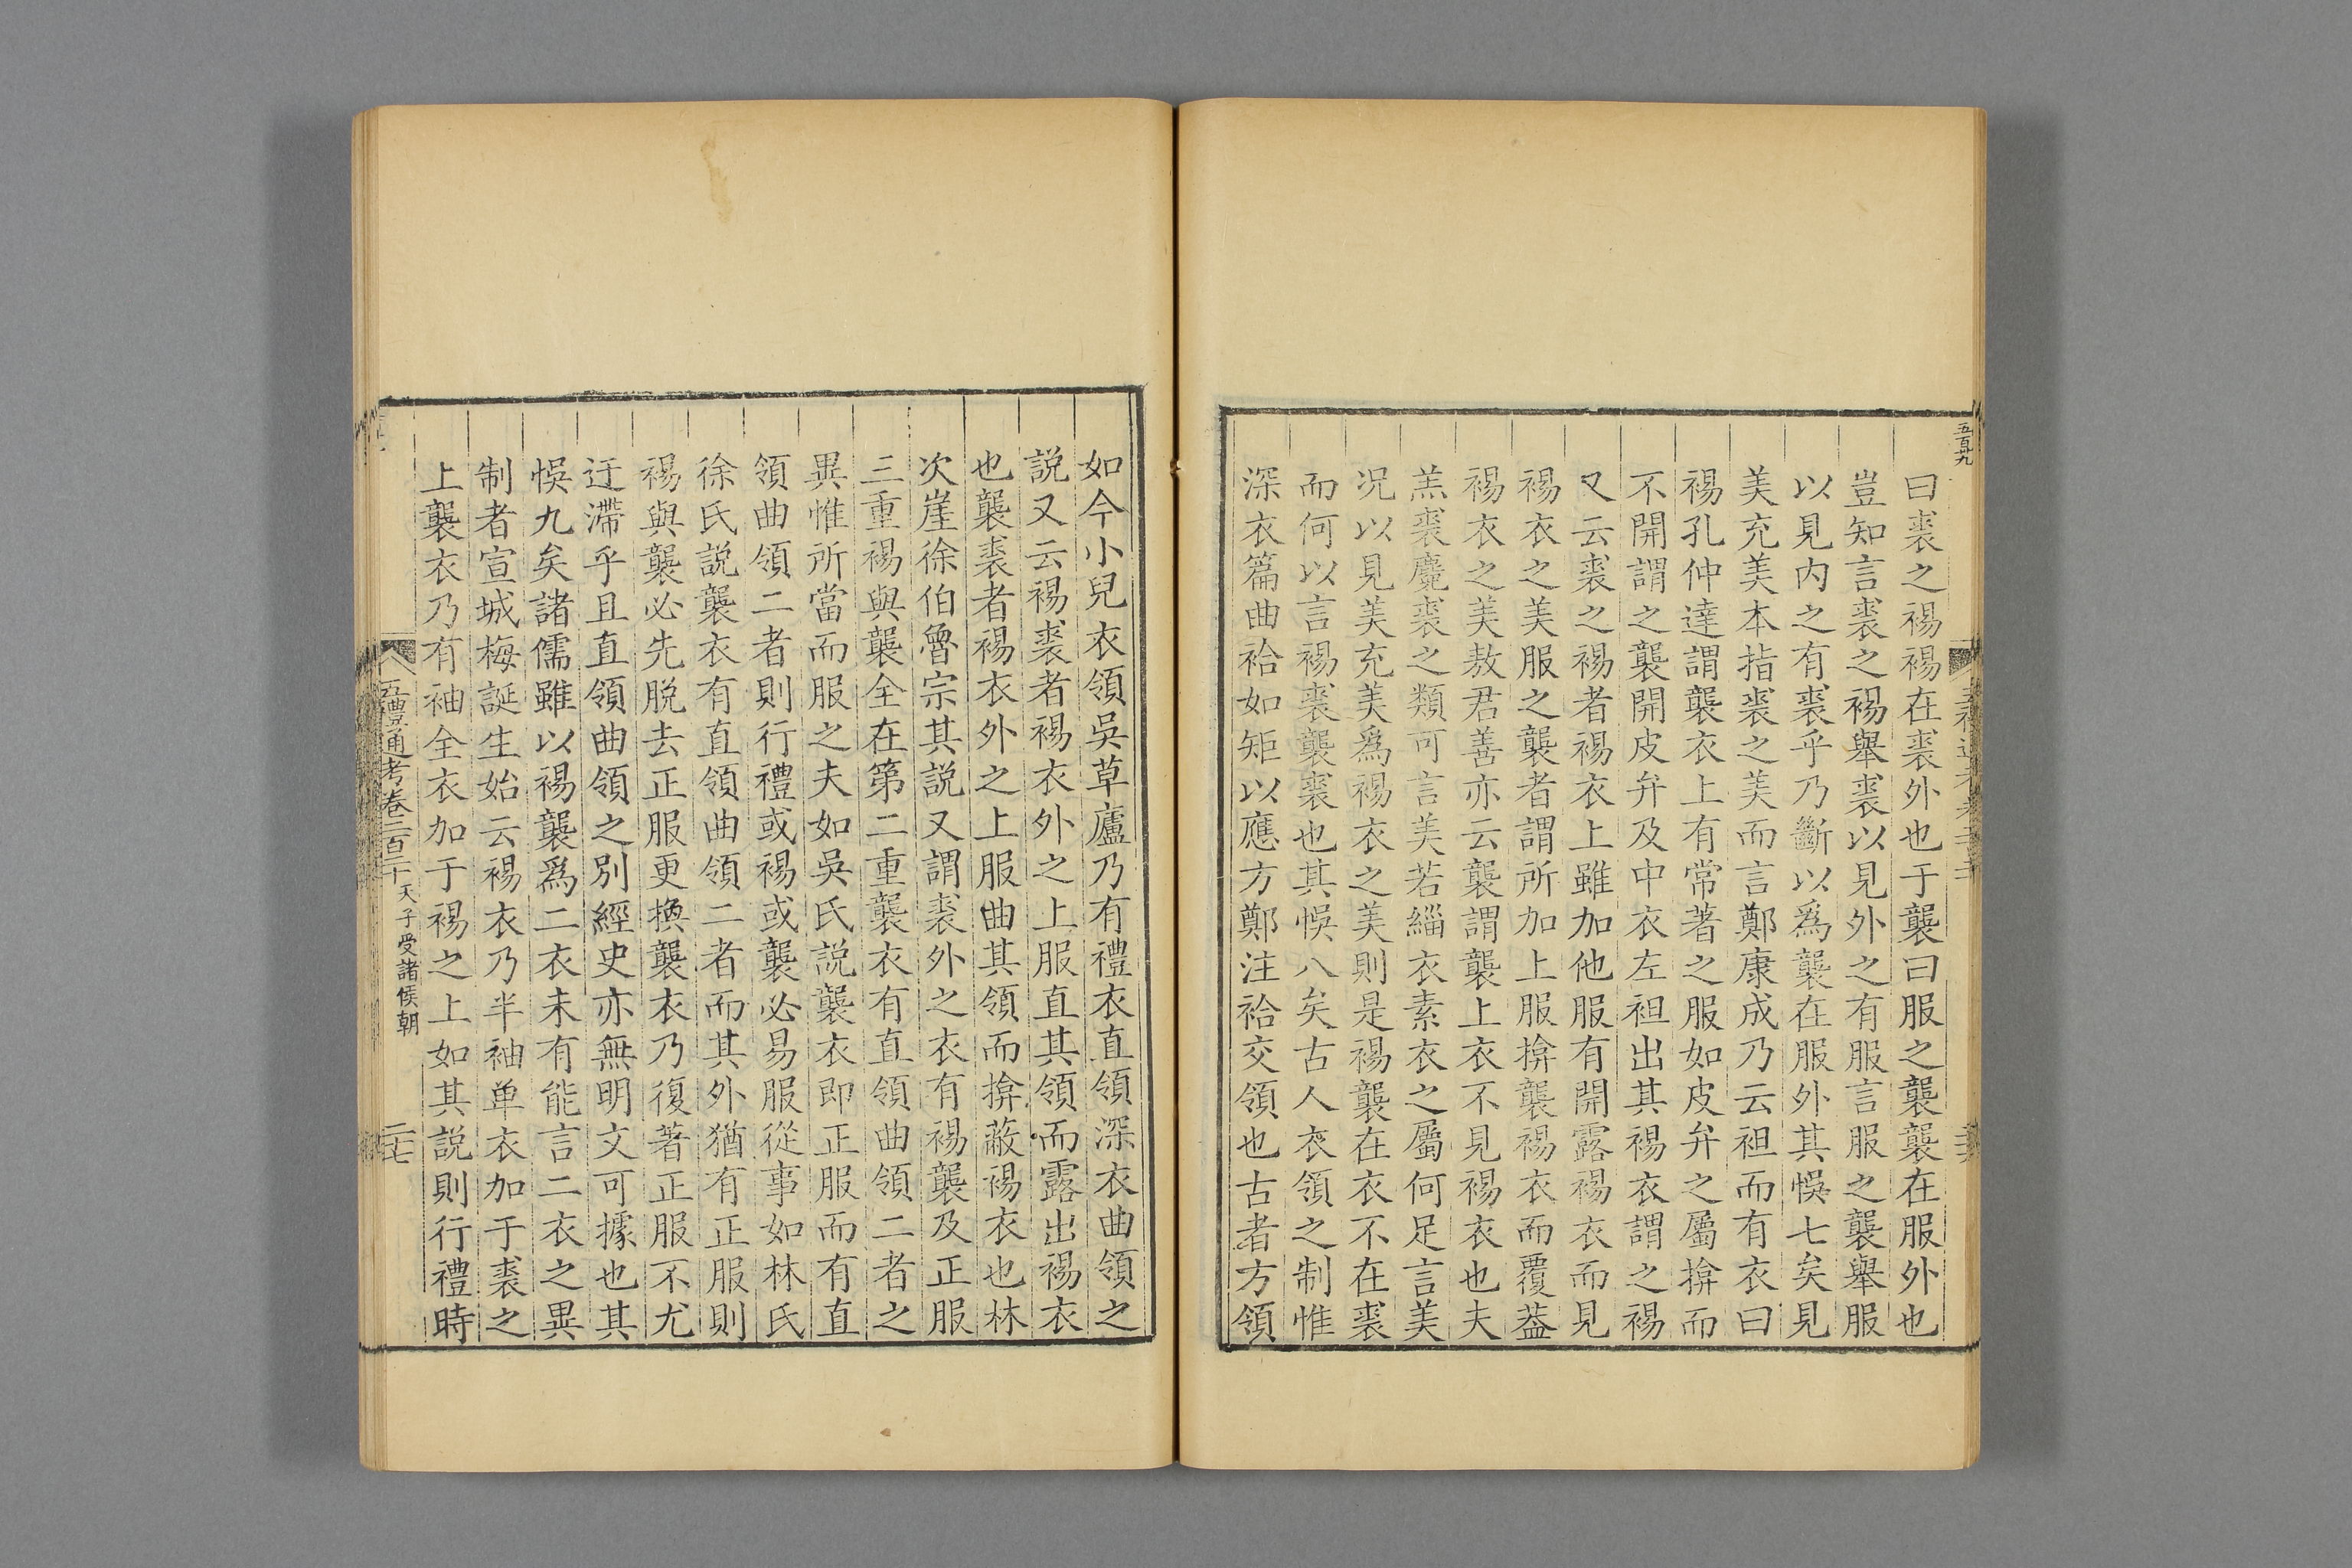 五百九
曰裘之裼裼在裘外也于襲曰服之襲襲在服外也
豈知言裘之裼舉裘以見外之有服言服之襲舉服
以見内之有裘乎乃斷以爲襲在服外其悞七矣見
美充美本指裘之美而言鄭康成乃云袒而有衣曰
裼孔仲達謂襲衣上有常著之服如皮弁之屬揜而
不開謂之襲開皮弁及中衣左袒出其裼衣謂之裼
又云裘之裼者裼衣上雖加他服有開露裼衣而見
裼衣之美服之襲者謂所加上服揜襲裼衣而覆葢
裼衣之美敖君善亦云襲謂襲上衣不見裼衣也夫
羔裘麑裘之類可言美若緇衣素衣之屬何足言美
况以見美充美爲裼衣之美則是裼襲在衣不在裘
而何以言裼裘襲裘也其悞八矣古人衣領之制惟
深衣篇曲袷如矩以應方鄭注袷交領也古者方領
如今小兒衣領吳草廬乃有禮衣直領深衣曲領之
説又云裼裘者裼衣外之上服直其領而露出裼衣
也襲裘者裼衣外之上服曲其領而揜蔽裼衣也林
次崖徐伯魯宗其説又謂裘外之衣有裼襲及正服
三重裼與襲全在第二重襲衣有直領曲領二者之
異惟所當而服之夫如吳氏説襲衣即正服而有直
領曲領二者則行禮或裼或襲必易服從事如林氏
徐氏説襲衣有直領曲領二者而其外猶有正服則
裼與襲必先脱去正服更換襲衣乃復著正服不尤
迂滯乎且直領曲領之别經史亦無明文可據也其
悞九矣諸儒雖以裼襲爲二衣未有能言二衣之異
制者宣城梅誕生始云裼衣乃半袖单衣加于裘之
上襲衣乃有袖全衣加于裼之上如其説則行禮時
五禮通考卷二百二十 天子受諸侯朝
二七